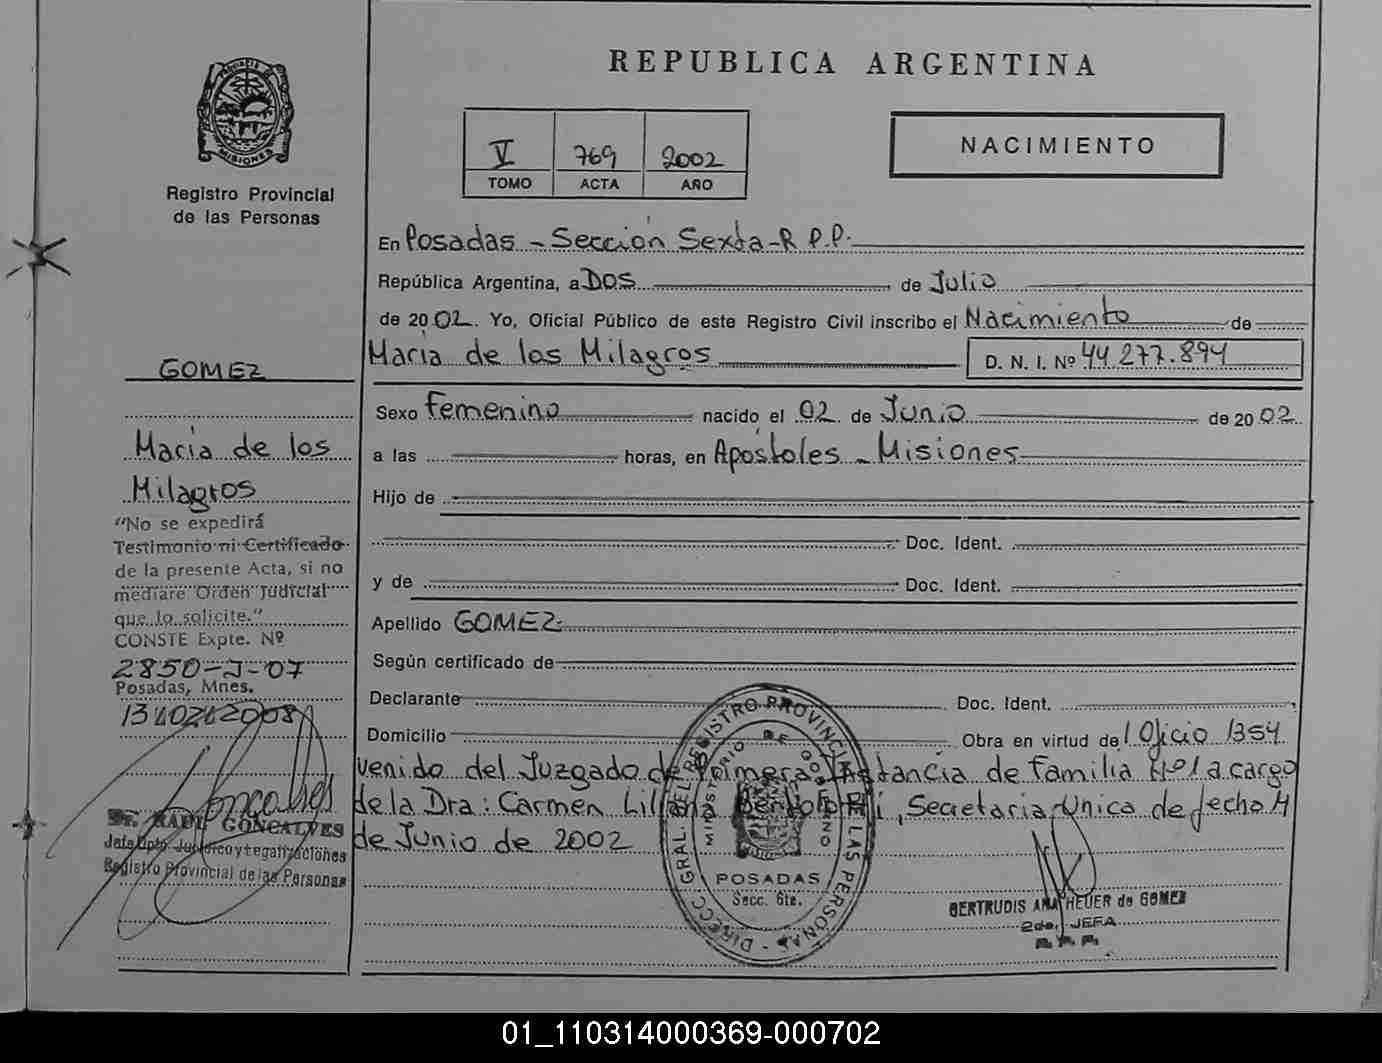 REPUBLICA ARGENTINA
PROVINCIA DE
MISIONES
Registro Provincial
de las Personas
V 769 2002
TOMO ACTA AÑO
NACIMIENTO
En Posadas - Sección Sexta - R.P.P.
República Argentina, a DOS de Julio
de 2002. Yo, Oficial Público de este Registro Civil inscribo el Nacimiento de
María de los Milagros D. N. I. Nº 44.277.894
Sexo Femenino nacido el 02 de Junio de 2002
a las horas, en Apóstoles - Misiones
Hijo de
Doc. Ident.
y de Doc. Ident.
Apellido GOMEZ
Según certificado de
Declarante Doc. Ident.
Domicilio Obra en virtud del Oficio 1354
venido del Juzgado de Primera Instancia de Familia Nº 1 a cargo
de la Dra: Carmen , Secretaria Única de fecha 14
de Junio de 2002
GOMEZ
María de los
Milagros
"No se expedirá
Testimonio ni Certificado
de la presente Acta, si no
mediare Orden Judicial
que lo solicite."
CONSTE Expte. Nº
2850-J-07
Posadas, Mnes.
13/02/2008
Dr. RAUL GONCALVES
Jefe Dpto. Jurídico y Legalizaciones
Registro Provincial de las Personas
DIRECC. GRAL. DEL REGISTRO PROVINCIAL DE LAS PERSONAS
MINISTERIO DE GOBIERNO
POSADAS
Secc. 6ta.
GERTRUDIS ANA HEUER de GOMEZ
2da. JEFA
R. P. P.
01_110314000369-000702